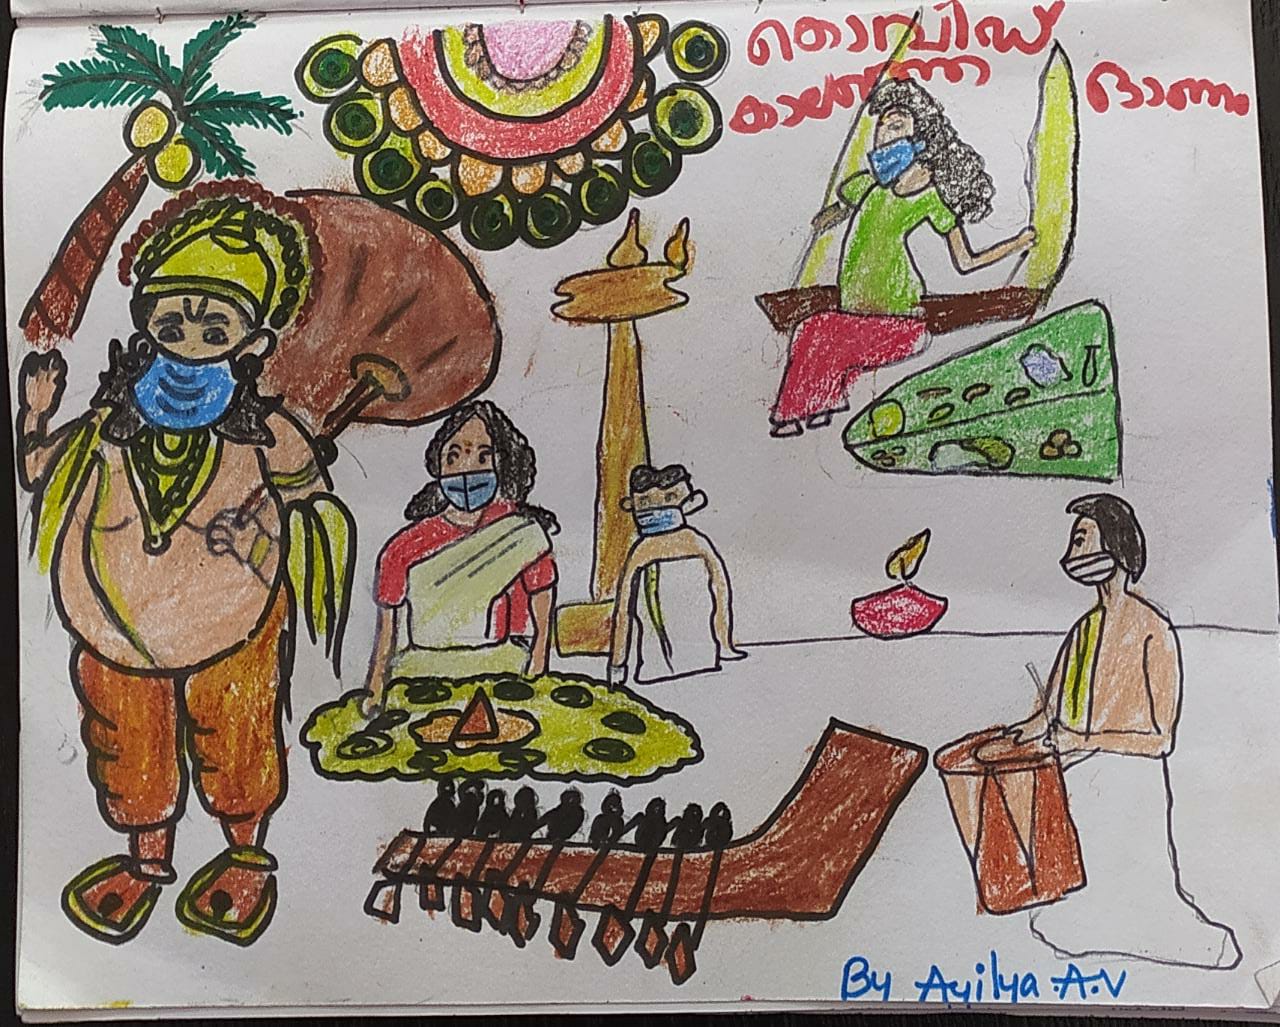 കൊവിഡ്
കാലത്തെ ഓണം
By Ayilya .A.V